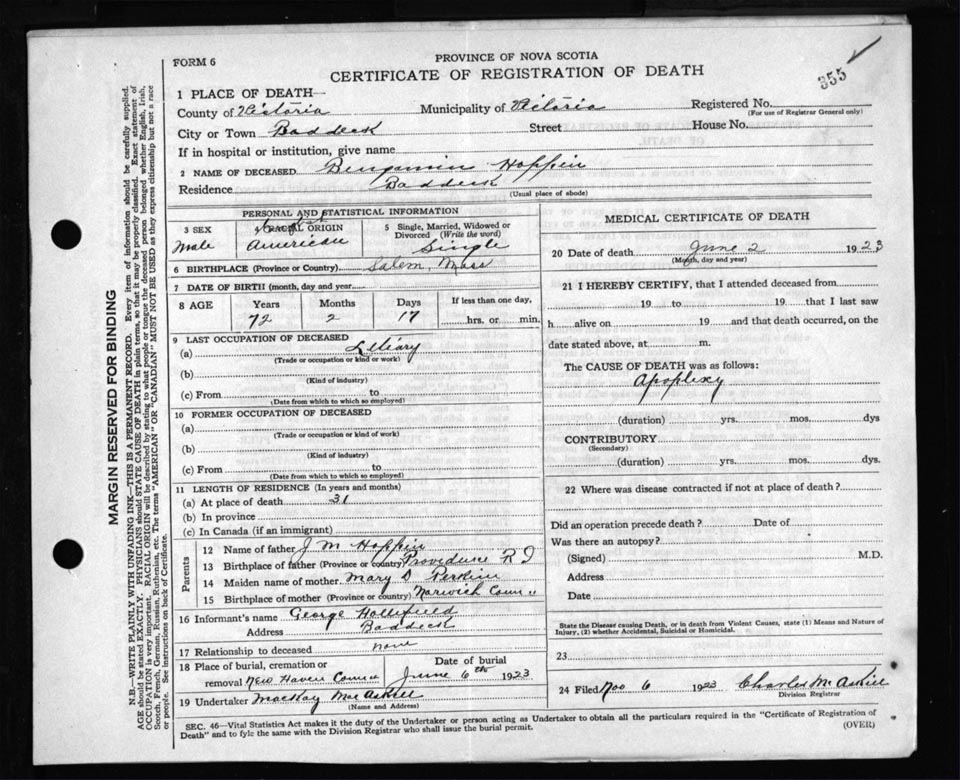 355
FORM 6
PROVINCE OF NOVA SCOTIA
CERTIFICATE OF REGISTRATION OF DEATH
1 PLACE OF DEATH—
County of Victoria Municipality of Victoria Registered No.
(For use of Registrar General only)
City or Town Baddeck Street House No.
If in hospital or institution, give name
2 NAME OF DECEASED Benjamin Hoppin
Residence Baddeck
(Usual place of abode)
PERSONAL AND STATISTICAL INFORMATION
3 SEX 4 RACIAL ORIGIN 5 Single, Married, Widowed or Divorced (Write the word)
Male American Single
6 BIRTHPLACE (Province or Country) Salem, Mass
7 DATE OF BIRTH (month, day and year)
8 AGE Years Months Days If less than one day,
72 2 17 hrs. or min.
9 LAST OCCUPATION OF DECEASED
(a)
(Trade or occupation or kind or work)
(b)
(Kind of industry)
(c) From to
(Date from which to which so employed)
10 FORMER OCCUPATION OF DECEASED
(a)
(Trade or occupation or kind of work)
(b)
(Kind of industry)
(c) From to
(Date from which to which so employed)
11 LENGTH OF RESIDENCE (In years and months)
(a) At place of death 31
(b) In province
(c) In Canada (if an immigrant)
Parents
12 Name of father J M Hoppin
13 Birthplace of father (Province or country) Providence R I
14 Maiden name of mother Mary D Perkins
15 Birthplace of mother (Province or country) Norwich Conn
16 Informant's name George Hollifield
Address Baddeck
17 Relationship to deceased none
18 Place of burial, cremation or Date of burial
removal New Haven Conn June 6th 1923
19 Undertaker MacKay MacAskill
(Name and Address)
MEDICAL CERTIFICATE OF DEATH
20 Date of death June 2 1923
(Month, day and year)
21 I HEREBY CERTIFY, that I attended deceased from
19 to 19 that I last saw
h alive on 19 and that death occurred, on the
date stated above, at m.
The CAUSE OF DEATH was as follows:
Apoplexy
(duration) yrs. mos. dys
CONTRIBUTORY
(Secondary)
(duration) yrs. mos. dys.
22 Where was disease contracted if not at place of death?
Did an operation precede death? Date of
Was there an autopsy?
(Signed) M.D.
Address
Date
State the Disease causing Death, or in death from Violent Causes, state (1) Means and Nature of
Injury, (2) whether Accidental, Suicidal or Homicidal.
23
24 Filed Nov 6 1923 Charles McAskill
Division Registrar
SEC. 46—Vital Statistics Act makes it the duty of the Undertaker or person acting as Undertaker to obtain all the particulars required in the "Certificate of Registration of
Death" and to fyle the same with the Division Registrar who shall issue the burial permit. (OVER)
MARGIN RESERVED FOR BINDING
N.B.—WRITE PLAINLY WITH UNFADING INK—THIS IS A PERMANENT RECORD. Every item of information should be carefully supplied.
AGE should be stated EXACTLY. PHYSICIANS should STATE CAUSE OF DEATH in plain terms, so that it may be properly classified. Exact statement of
OCCUPATION is very important. RACIAL ORIGIN will be described by stating to what people or tongue the deceased person belonged whether English, Irish,
Scotch, French, German, Russian, Ruthenian, etc. The terms "AMERICAN" OR "CANADIAN" MUST NOT BE USED as they express citizenship but not a race
or people. See instructions on back of Certificate.